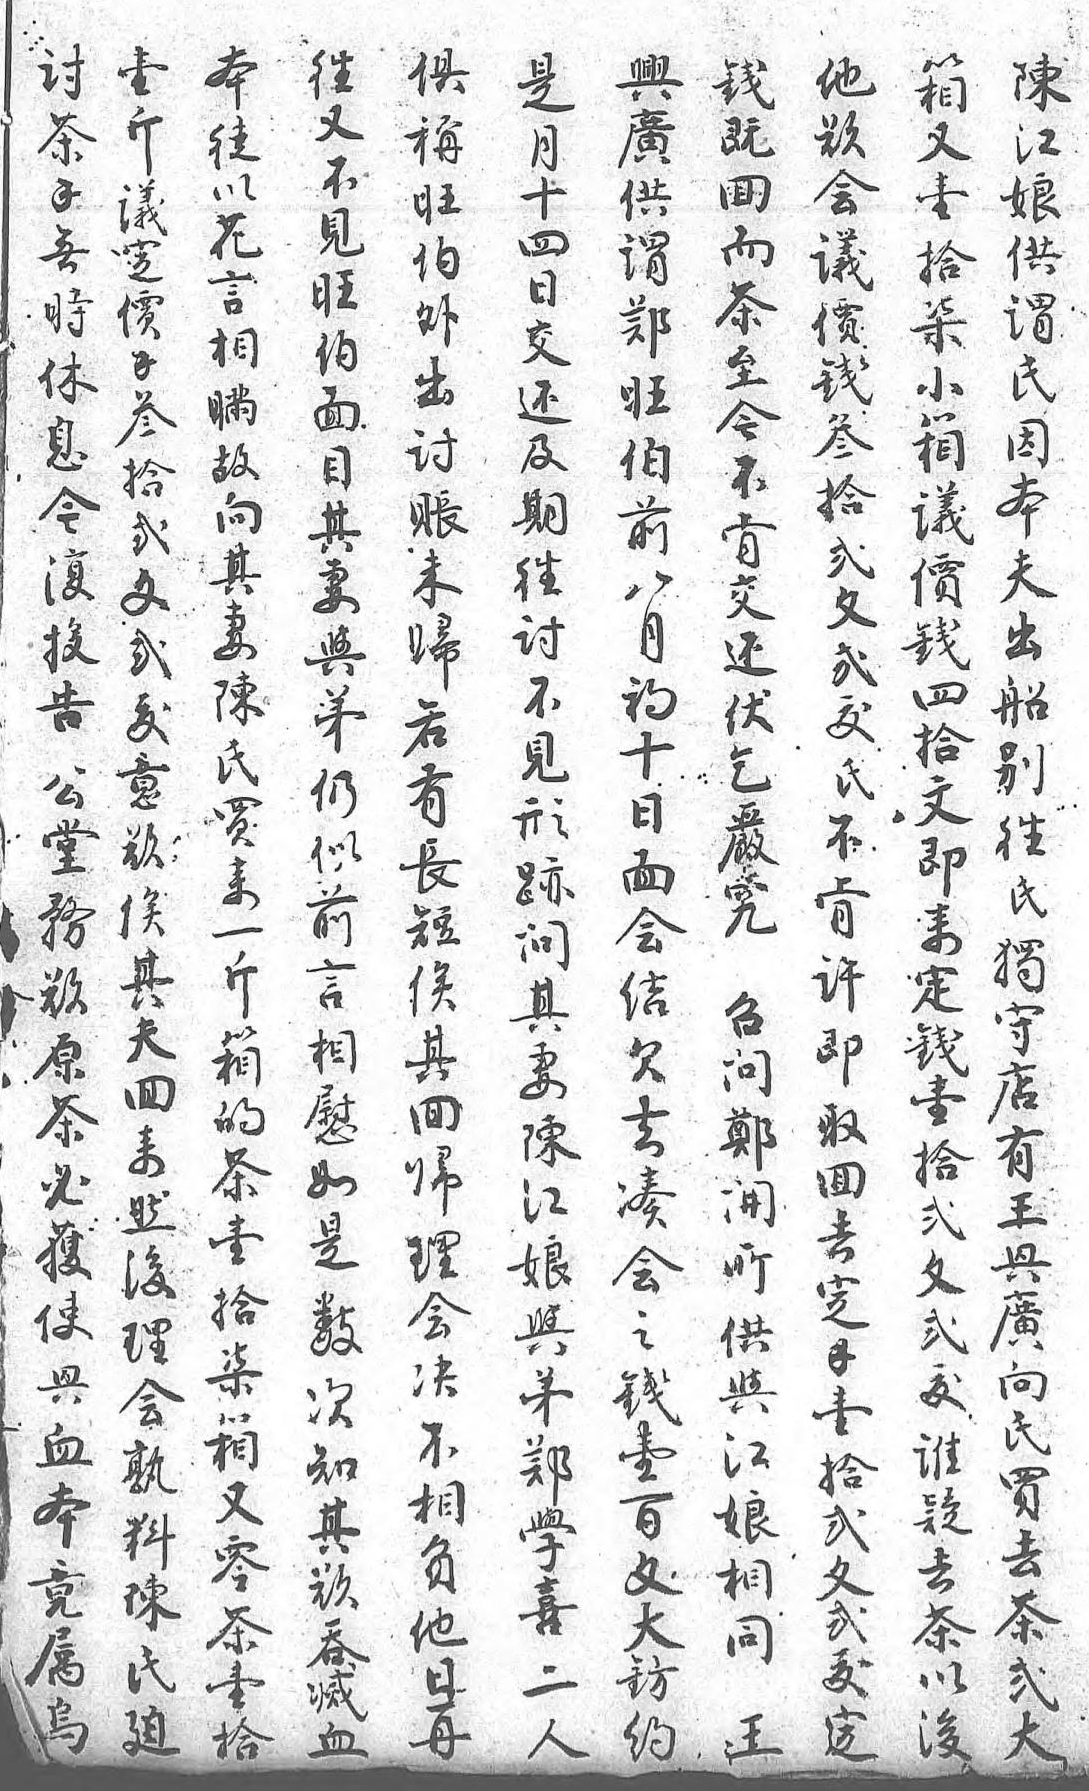 陳江娘供謂氏因本夫出船別往氏獨守店有王興廣向氏買去茶弍大
箱又壹拾柒小箱議價錢四拾文即來定錢壹拾弍文弍方誰疑去茶以後
他欲会議價錢叁拾弍文弍方氏不肯許即取囬去定錢壹拾弍文弍方定
錢既囬而茶至今不肯交还伏乞嚴究 召問鄭開所供與江娘相同 王
興廣供謂鄭旺伯前八月初十日面会結欠去凑会之錢壹百文大鈁約
是月十四日交还及期往討不見形跡问其妻陳江娘與弟鄭學喜二人
俱称旺伯外出討賬未歸若有長短俟其回歸理会决不相負他日再
往又不見旺伯面目其妻與弟仍似前言相慰如是數次知其欲吞滅血
本徒以花言相瞒故向其妻陳氏買来一斤箱的茶壹拾柒箱又零茶壹拾
壹斤議定價錢叁拾弍文弍方意欲俟其夫回来然後理会孰料陳氏迫
討茶錢無時休息今復投告 公堂務欲原茶必獲使興血本竟属烏